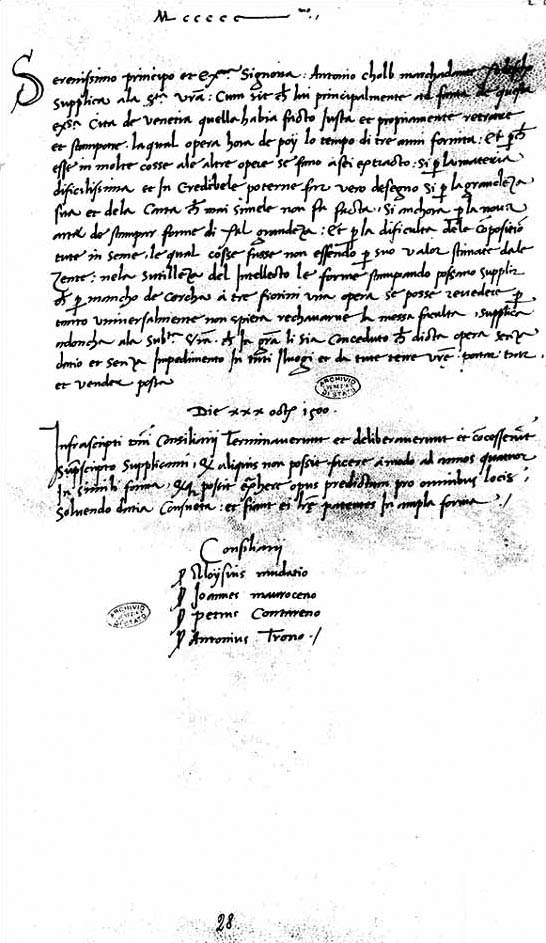 M ccccc
Serenissimo principo et Ex.ma Signoria: Antonio cholb marchadante Todescho
Supplica ala S.ta vra: Cum sit ch lui principalmente ad fama de questa
exsa Cita de venetia quella habia facto Justa et propriamente retrare
et stampare. la qual opera hora de poij lo tempo di tre anni fornita: Et p ch
esse in molte cosse ale altre opere se fano assei extracto: si p la materia
dificilissima et In Credibele poterne far vero desegno Si p la grandeza
sua et dela Carta ch mai simele non fu facta. Si anchora p la nova
arte de stampar forme di tal grandeza: Et p la dificulta dele Copositio
tute in seme. le qual cosse fusse non essendo p suo valor stimate dale
Zente: nela sutilleza del Intellecto le forme stampando possano supplir
ch p mancho de Cercha a tre fiorini una opera se posse revedere p
tanto universalmente non spiera rechavarne la messa facultα. supplica
adoncha ala Sub.ta vra. ch In gra li sia Conceduto ch dicta opera senza
datio et senza Impedimento In tuti i luogi et da tute terre vre. portar trar.
et vender possa
ARCHIVIO
VENEZIA
DI STATO
Die xxx octb 1500.
Infrascripti dni Consiliarij Terminaverunt et deliberaverunt et cocesserut
Supscripto Supplicanti, q aliquis non possit facere a modo ad annos quatuor
In simili forma. possit opus predictum pro omnibus locis
Solvendo datia Consueta: et fiant ei lre patentes In ampla forma ./
Consiliarij
Aloysius mudatio
Joannes mauroceno
Petrus Contareno
Antonius Trono ./
ARCHIVIO
VENEZIA
DI STATO
28